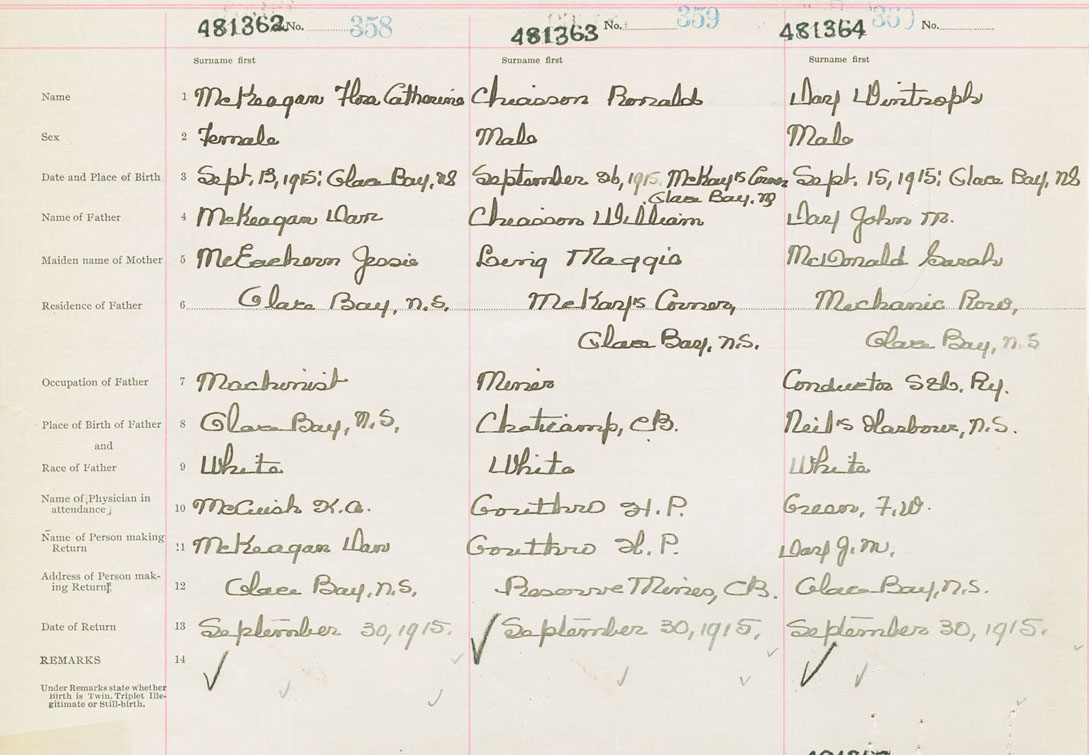 481362 No. 358 481363 No. 359 481364 360 No.
Surname first Surname first Surname first
Name 1 McKeagan Flora Catherine Chiasson Ronald Day Wintroph
Sex 2 Female Male Male
Date and Place of Birth 3 Sept. 13, 1915; Glace Bay, NS September 26, 1915. McKay's Corner Sept. 15, 1915; Glace Bay, NS
Glace Bay, NS
Name of Father 4 McKeagan Dan Chiasson William Day John M.
Maiden name of Mother 5 McEachern Jessie Maggie McDonald Sarah
Residence of Father 6 Glace Bay, N.S. McKay's Corner, Mechanic Row,
Glace Bay, N.S. Glace Bay, N.S
Occupation of Father 7 Machinist Miner Conductor S&L. Ry.
Place of Birth of Father 8 Glace Bay, N.S. Cheticamp, CB. Neil's Harbour, N.S.
and
Race of Father 9 White White White
Name of Physician in
attendance 10 McCuish K.A. Gouthro H.P. Green, F.W.
Name of Person making
Return 11 McKeagan Dan Gouthro H.P. Day J.M.
Address of Person mak-
ing Return 12 Glace Bay, N.S. Reserve Mines, CB. Glace Bay, N.S.
Date of Return 13 September 30, 1915. September 30, 1915. September 30, 1915.
REMARKS 14
Under Remarks state whether
Birth is Twin, Triplet Ille-
gitimate or Still-birth.